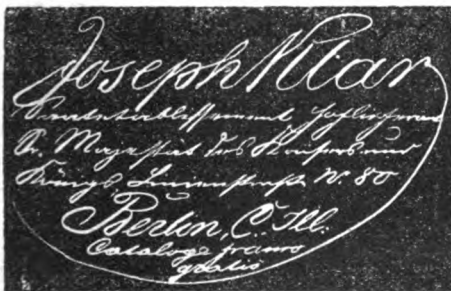 Joseph Klar
Samenetablissement, Hoflieferant
Sr. Majestät des Kaisers und
Königs, Linienstraße N. 80
Berlin, C.
Cataloge franco
gratis